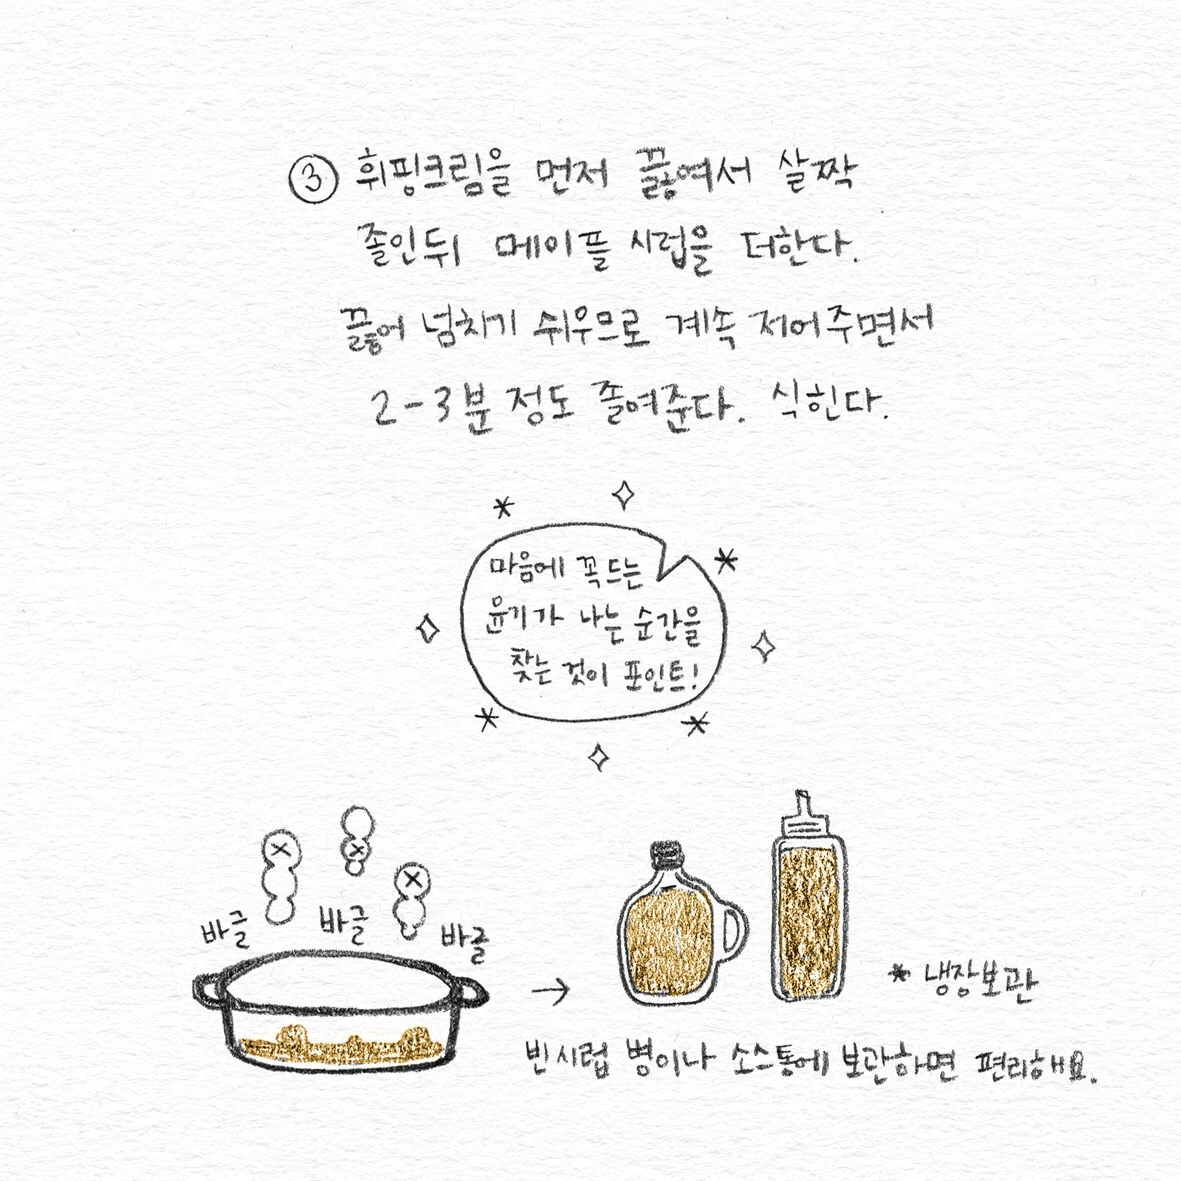 ③ 휘핑크림을 먼저 끓여서 살짝
졸인뒤 메이플 시럽을 더한다.
끓어 넘치기 쉬우므로 계속 저어주면서
2-3분 정도 졸여준다. 식힌다.
마음에 꼭 드는
윤기가 나는 순간을
찾는 것이 포인트!
바글 바글 바글
* 냉장보관
빈 시럽 병이나 소스통에 보관하면 편리해요.